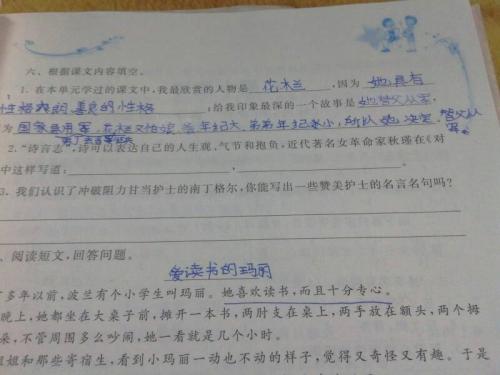 六、根据课文内容填空。
1. 在本单元学过的课文中,我最欣赏的人物是 花木兰 ,因为 她具有
性格爽朗、善良的性格 ,给我印象最深的一个故事是 她替父从军,
为 国家要用军,花木兰父怕读 年纪大,弟弟年纪农小,所以她决定 替父从
军。
2. “诗言志”,诗可以表达自己的人生观,气节和抱负,近代著名女革命家秋瑾在《对
中这样写道: , 。
3. 我们认识了冲破阻力甘当护士的南丁格尔,你能写出一些赞美护士的名言名句吗?
、阅读短文,回答问题。
爱读书的玛丽
多年以前,波兰有个小学生叫玛丽。她喜欢读书,而且十分专心。
晚上,她都坐在大桌子前,摊开一本书,两肘支在桌上,两手放在额头,两个拇
朵,不管周围多么吵闹,她一看就是几个小时。
姐和那些寄宿生,看到小玛丽一动也不动的样子,觉得又奇怪又有趣。于是